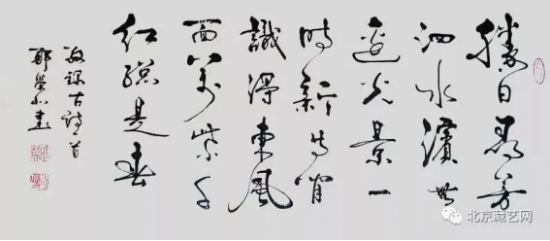 勝日尋芳
泗水濱無
邊光景一
時新等閒
識得東風
面萬紫千
紅總是春
敬録古詩首
書
北京藏艺网